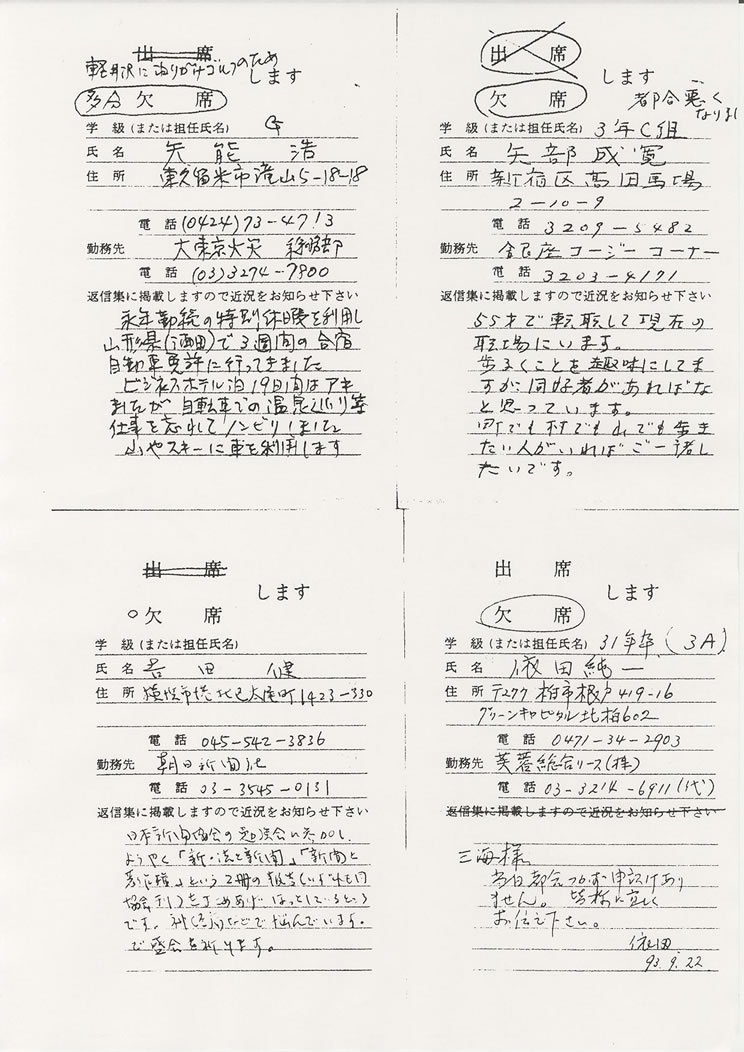 出席
軽井沢に泊りがけゴルフのため
します
多分 欠席
学級(または担任氏名) G
氏名 矢能 浩
住所 東久留米市滝山5-18-18
電話 (0424)73-4713
勤務先 大東京火災
電話 (03)3274-7900
返信集に掲載しますので近況をお知らせ下さい
永年勤続の特別休暇を利用し
山形県(酒田)で3週間の合宿
自動車免許に行ってきました
ビジネスホテル泊19日間はアキ
ましたが 自転車での温泉巡り等
仕事を忘れてノンビリしました
山やスキーに車を利用します
出席
します
欠席 都合悪く
なりまし
学級(または担任氏名) 3年C組
氏名 矢部成寛
住所 新宿区高田馬場
2-10-9
電話 3209-5482
勤務先 銀座コージーコーナー
電話 3203-4171
返信集に掲載しますので近況をお知らせ下さい
55才で転職して現在の
職場にいます。
歩るくことを趣味にしてま
すが同好者があればな
と思っています。
町でも村でも山でも歩き
たい人がいればご一諸し
たいです。
出席
します
欠席
学級(または担任氏名)
氏名 吉田 健
住所 横浜市港北区太尾町1423-330
電話 045-542-3836
勤務先 朝日新聞社
電話 03-3545-0131
返信集に掲載しますので近況をお知らせ下さい
日本新聞協会の研究会に参加し、
ようやく「新・法と新聞」「新聞と
という2冊の報告(いずれも同
協会刊)をまとめあげ ほっとしているところ
です。 などで悩んでいます。
ご盛会を祈ります。
出席
します
欠席
学級(または担任氏名) 31年卒 (3A)
氏名 依田純一
住所 〒277 柏市根戸419-16
グリーンキャピタル北柏602
電話 0471-34-2903
勤務先 芙蓉総合リース(株)
電話 03-3214-6911(代)
返信集に掲載しますので近況をお知らせ下さい
三海様
当日都合つかず申訳けあり
ません。皆様に宜しく
お伝え下さい。
依田
93.9.22